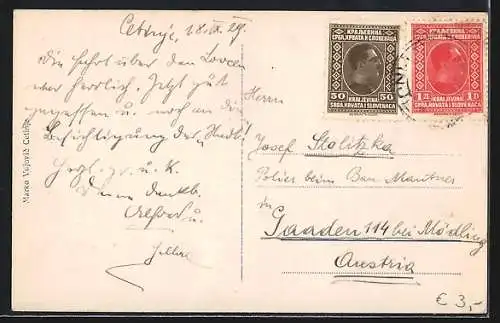 Cetinje, 18.IX.29.
Die Fahrt über den Lovcen
war herrlich. Jetzt gut
gegessen u. noch an die
Besichtigung der Stadt!
Hzgl. gr. u. K.
Eure dankb.
u.
КРАЉЕВИНА
СРБА, ХРВАТА И СЛОВЕНАЦА
50 50
KRALJEVINA
SRBA, HRVATA I SLOVENACA
КРАЉЕВИНА
СРБА, ХРВАТА И СЛОВЕНАЦА
1 Д 1 D
KRALJEVINA
SRBA, HRVATA I SLOVENACA
Herrn
Josef Stolitzka
Polier beim Bau
in
Gaaden 114 bei Mödling
Austria
€ 3,-
Marko Vujović Cetinje